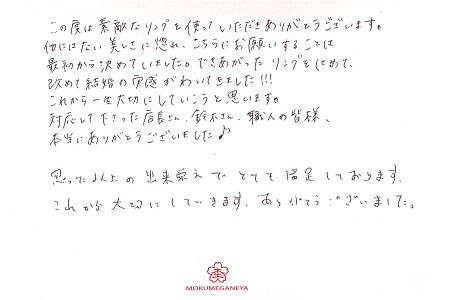 この度は素敵なリングを使っていただきありがとうございます。
他にはない美しさに惚れ、こちらにお願いすることは
最初から決めていました。できあがったリングをはめて、
改めて結婚の実感がわいてきました!!!
これから一生大切にしていこうと思います。
対応して下さった店長さん、鈴木さん、職人の皆様、
本当にありがとうございました♪
思った以上の出来栄えでとても満足しております。
これから大切にしていきます。ありがとうございました。
MOKUMEGANEYA